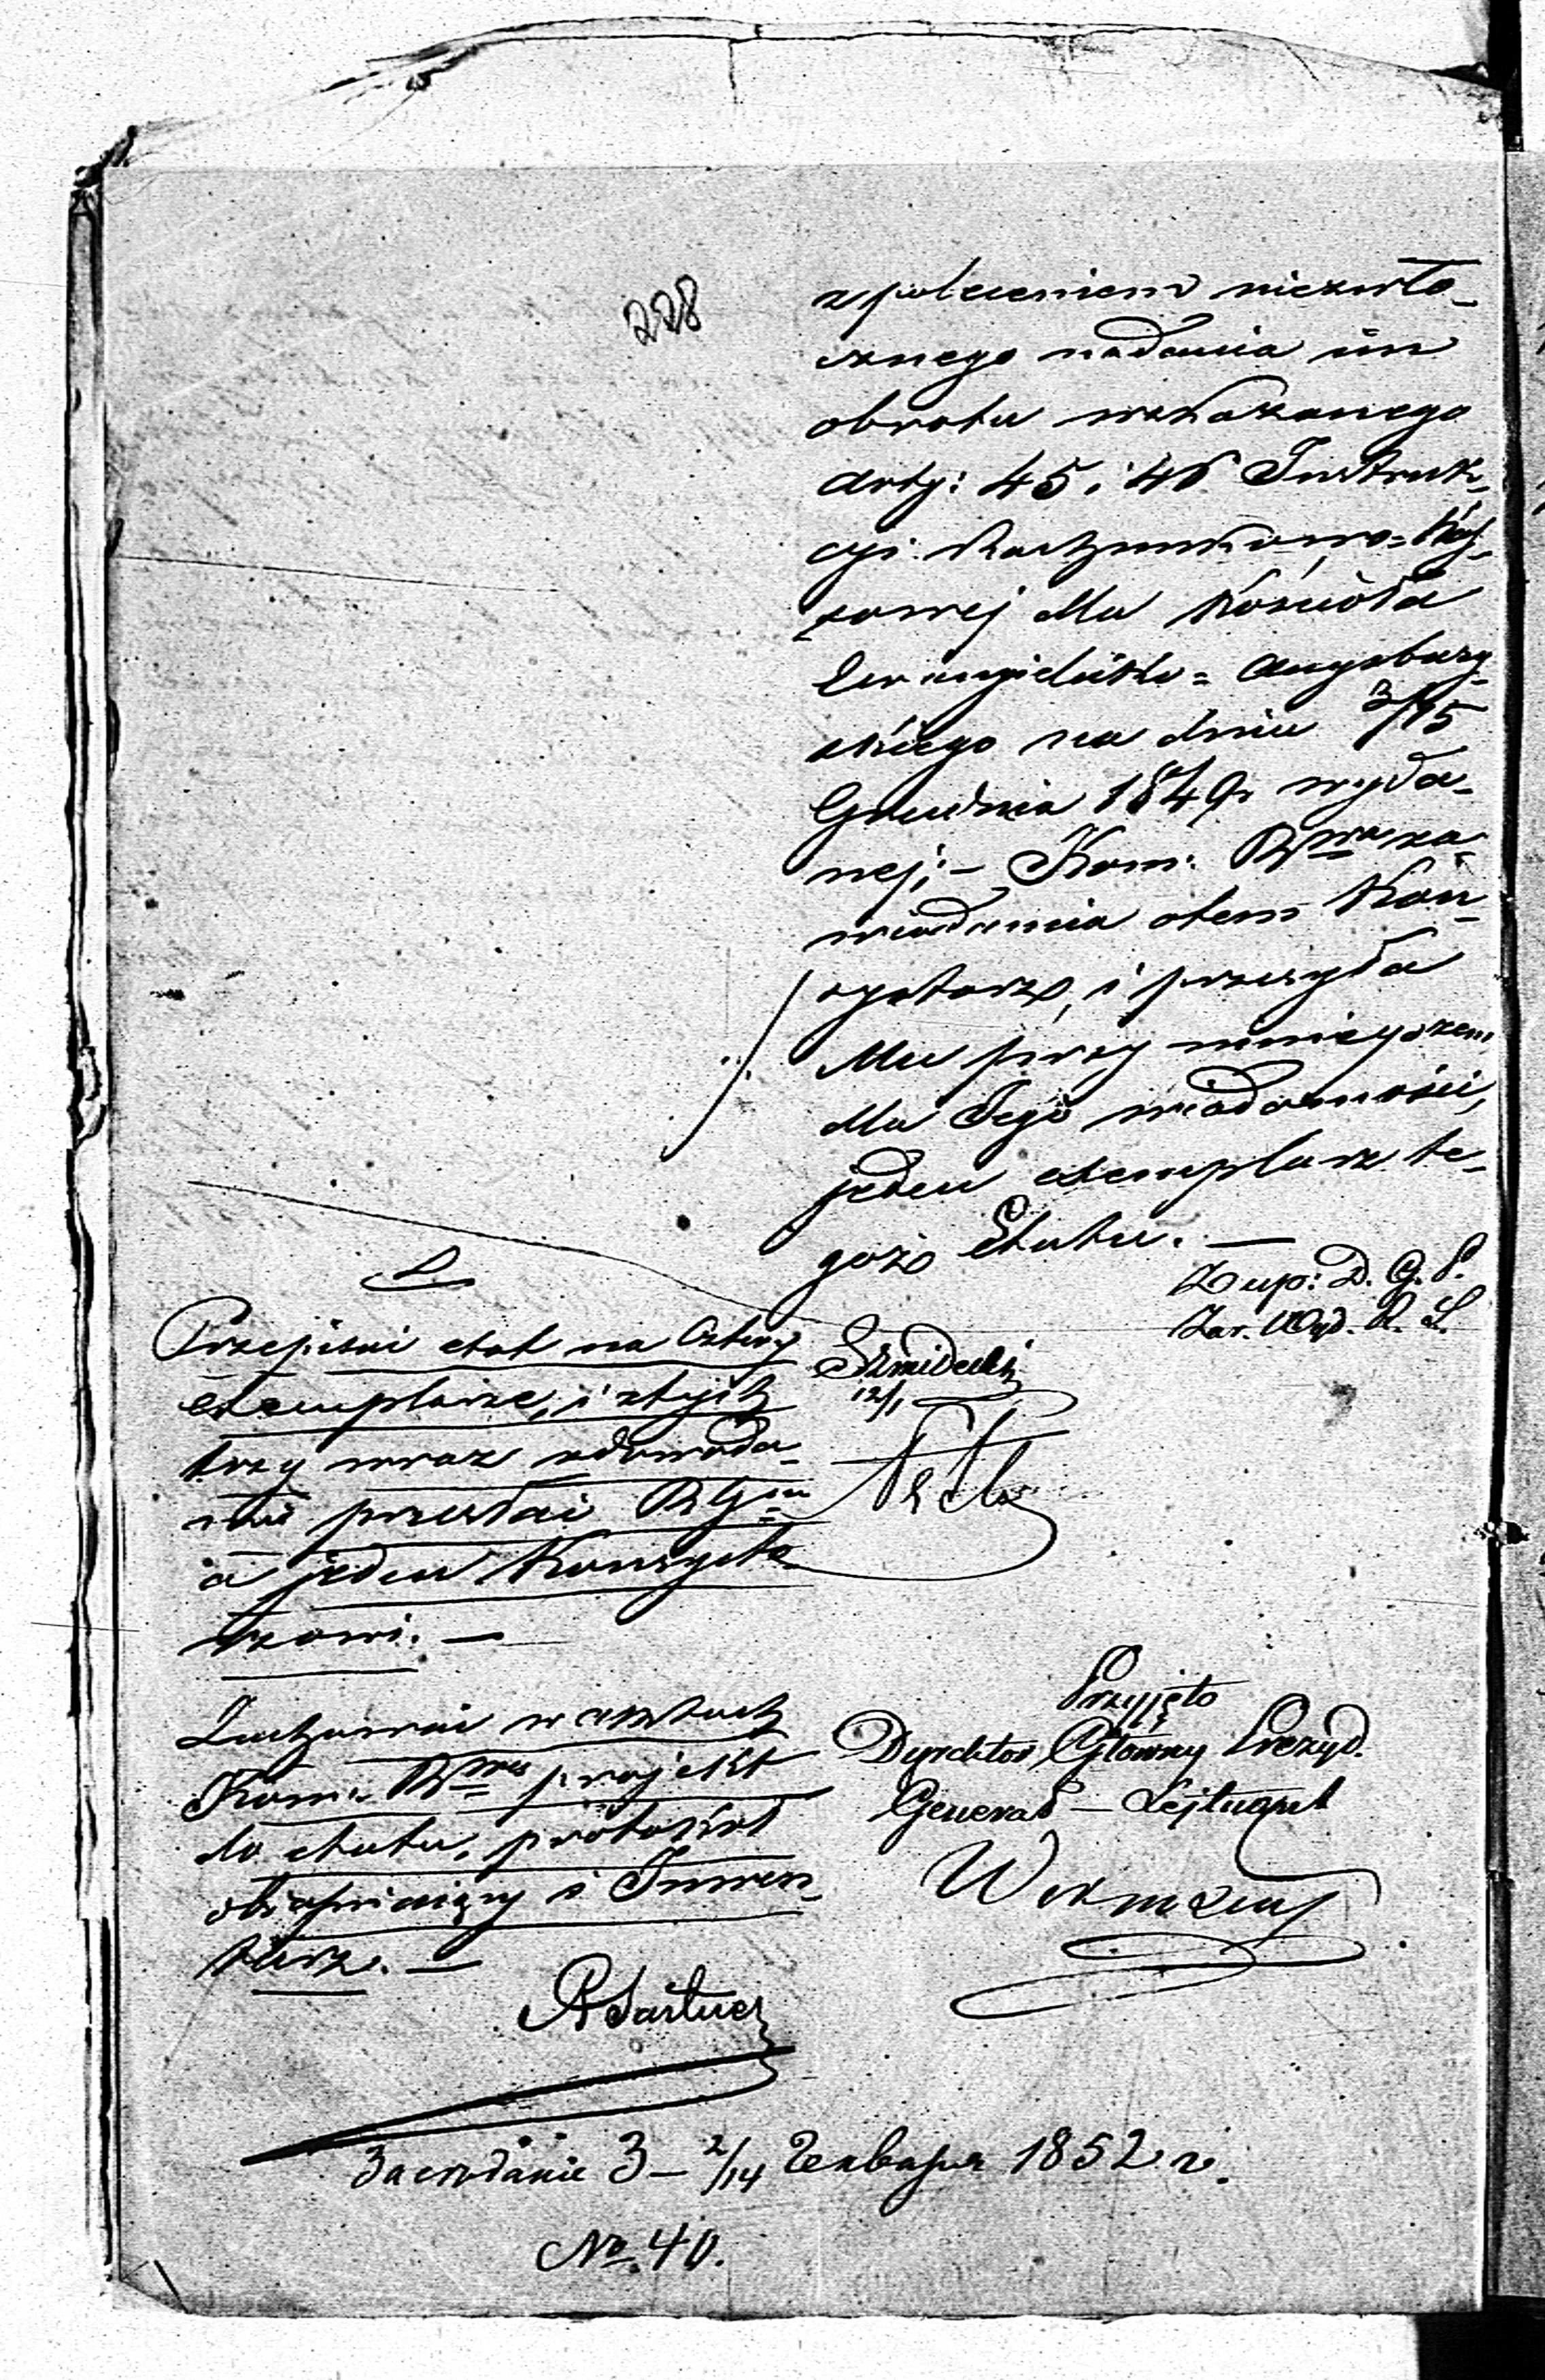 228
z poleceniem niezwło-
cznego nadania im
obrotu wskazanego
arty: 45 i 46 Instruk-
cyi Rachunkowo-Kas-
sowej dla Kościoła
Ewangielicko-Augsburg-
skiego na dniu 3/15
Grudnia 1849 r wyda-
nej; — Kom: Rwa za-
wiadamia otem Kon-
systorz, i przesyła
Mu przy niniejszem
dla Jego wiadomości,
jeden exemplarz te-
goż Etatu. —
Zup: D. G. P.
Zar. Wyd. R. L.
Przepisać etat na cztery
exemplarze, i z tych
trzy wraz z dowoda-
mi przesłać RGu
a jeden Konsysto-
rzowi. —
Szmidecki
12/1
Zachować w aktach
Kom: Rwej projekt
do etatu, protokół
objaśniający i Inwen-
tarz. —
Przyjęto
Dyrektor Główny Prezyd.
Generał — Lejtnant
Заседание 3 — 2/14 Генваря 1852 г.
No. 40.